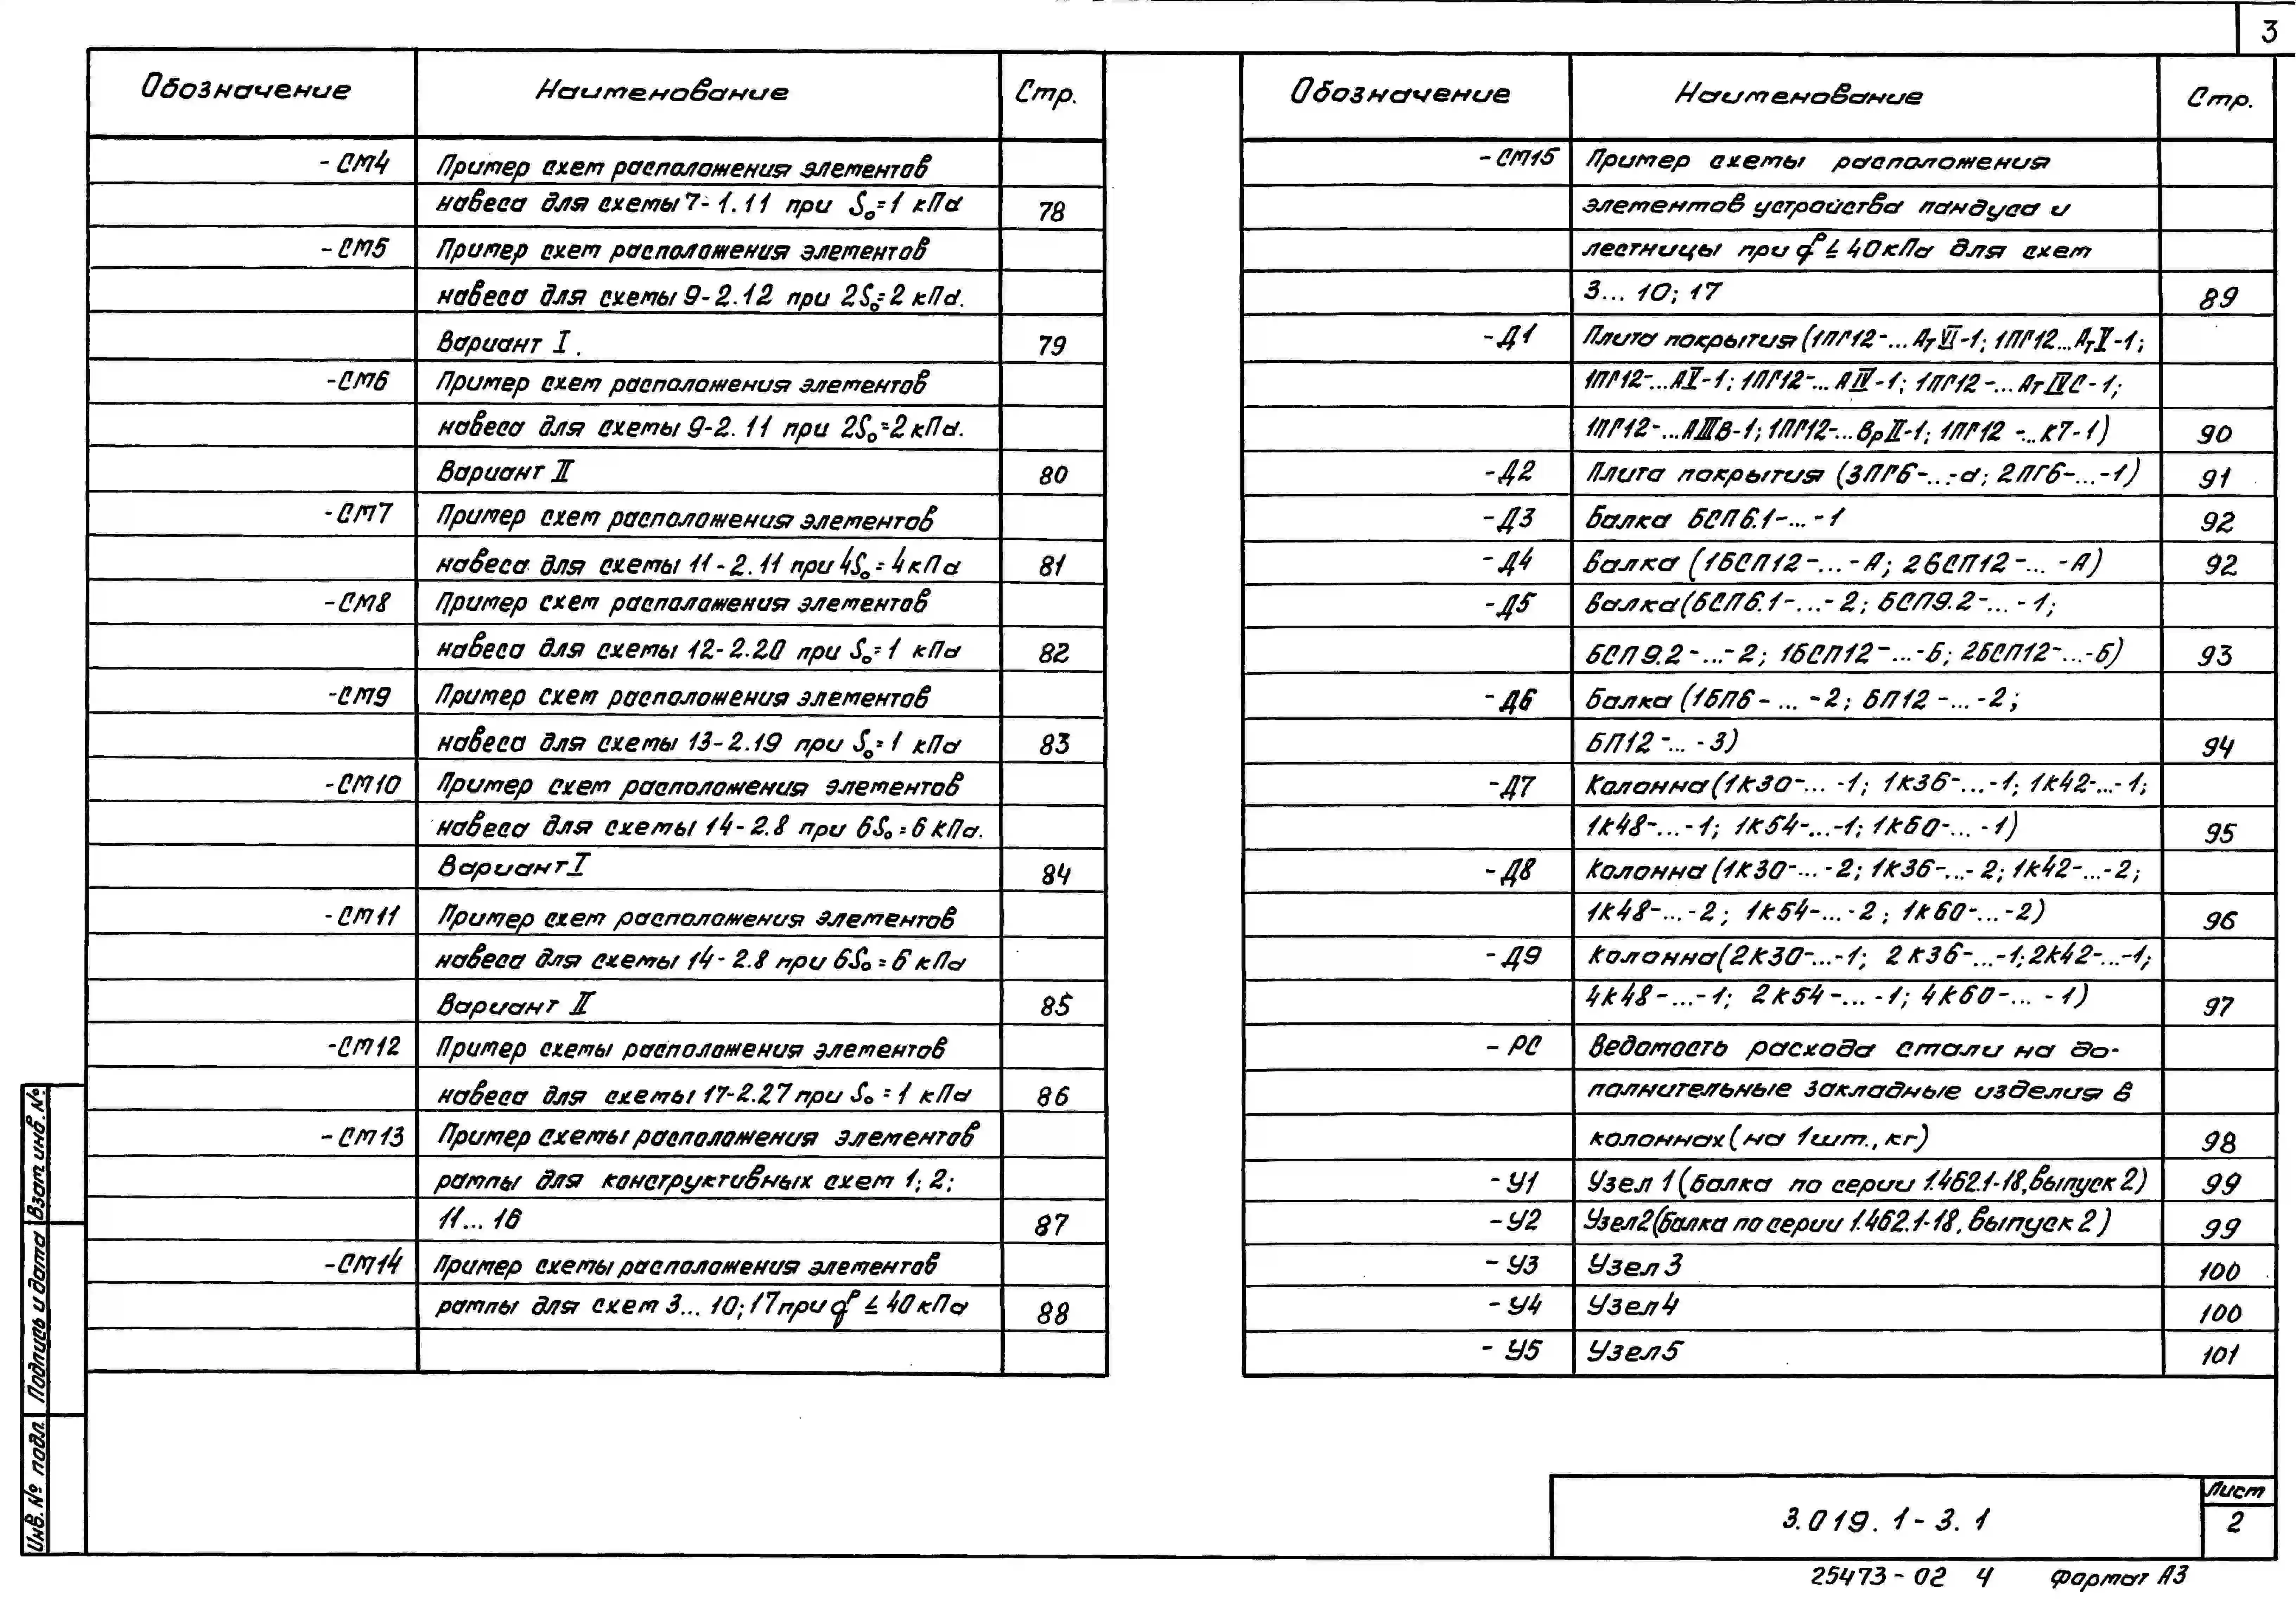 3
Обозначение Наименование Стр.
-СМ4 Пример схем расположения элементов
навеса для схемы 7-1.11 при S₀=1 кПа 78
-СМ5 Пример схем расположения элементов
навеса для схемы 9-2.12 при 2S₀=2 кПа.
Вариант I. 79
-СМ6 Пример схем расположения элементов
навеса для схемы 9-2.11 при 2S₀=2 кПа.
Вариант II 80
-СМ7 Пример схем расположения элементов
навеса для схемы 11-2.11 при 4S₀=4 кПа 81
-СМ8 Пример схем расположения элементов
навеса для схемы 12-2.20 при S₀=1 кПа 82
-СМ9 Пример схем расположения элементов
навеса для схемы 13-2.19 при S₀=1 кПа 83
-СМ10 Пример схем расположения элементов
навеса для схемы 14-2.8 при 6S₀=6 кПа.
Вариант I 84
-СМ11 Пример схем расположения элементов
навеса для схемы 14-2.8 при 6S₀=6 кПа
Вариант II 85
-СМ12 Пример схемы расположения элементов
навеса для схемы 17-2.27 при S₀=1 кПа 86
-СМ13 Пример схемы расположения элементов
рампы для конструктивных схем 1; 2;
11...16 87
-СМ14 Пример схемы расположения элементов
рампы для схем 3...10; 17 при qᵖ ≤ 40 кПа 88
Обозначение Наименование Стр.
-СМ15 Пример схемы расположения
элементов устройства пандуса и
лестницы при qᵖ ≤ 40 кПа для схем
3...10; 17 89
-Д1 Плита покрытия (1ПГ12-...АтVI-1; 1ПГ12...АтV-1;
1ПГ12-...АV-1; 1ПГ12-...АIV-1; 1ПГ12-...АтIVС-1;
1ПГ12-...АIIIв-1; 1ПГ12-...ВрII-1; 1ПГ12-...К7-1) 90
-Д2 Плита покрытия (3ПГ6-...-а; 2ПГ6-...-1) 91
-Д3 Балка БСП6.1-...-1 92
-Д4 Балка (1БСП12-...-А; 2БСП12-...-А) 92
-Д5 Балка (БСП6.1-...-2; БСП9.2-...-1;
БСП9.2-...-2; 1БСП12-...-Б; 2БСП12-...-Б) 93
-Д6 Балка (1БП6-...-2; БП12-...-2;
БП12-...-3) 94
-Д7 Колонна (1К30-...-1; 1К36-...-1; 1К42-...-1;
1К48-...-1; 1К54-...-1; 1К60-...-1) 95
-Д8 Колонна (1К30-...-2; 1К36-...-2; 1К42-...-2;
1К48-...-2; 1К54-...-2; 1К60-...-2) 96
-Д9 Колонна (2К30-...-1; 2К36-...-1; 2К42-...-1;
4К48-...-1; 2К54-...-1; 4К60-...-1) 97
-РС Ведомость расхода стали на до-
полнительные закладные изделия в
колоннах (на 1шт., кг) 98
-У1 Узел 1 (балка по серии 1.462.1-18, выпуск 2) 99
-У2 Узел 2 (балка по серии 1.462.1-18, выпуск 2) 99
-У3 Узел 3 100
-У4 Узел 4 100
-У5 Узел 5 101
Инв. № подл. Подпись и дата Взам. инв. №
3.019.1-3.1
Лист
2
25473-02 4 Формат А3